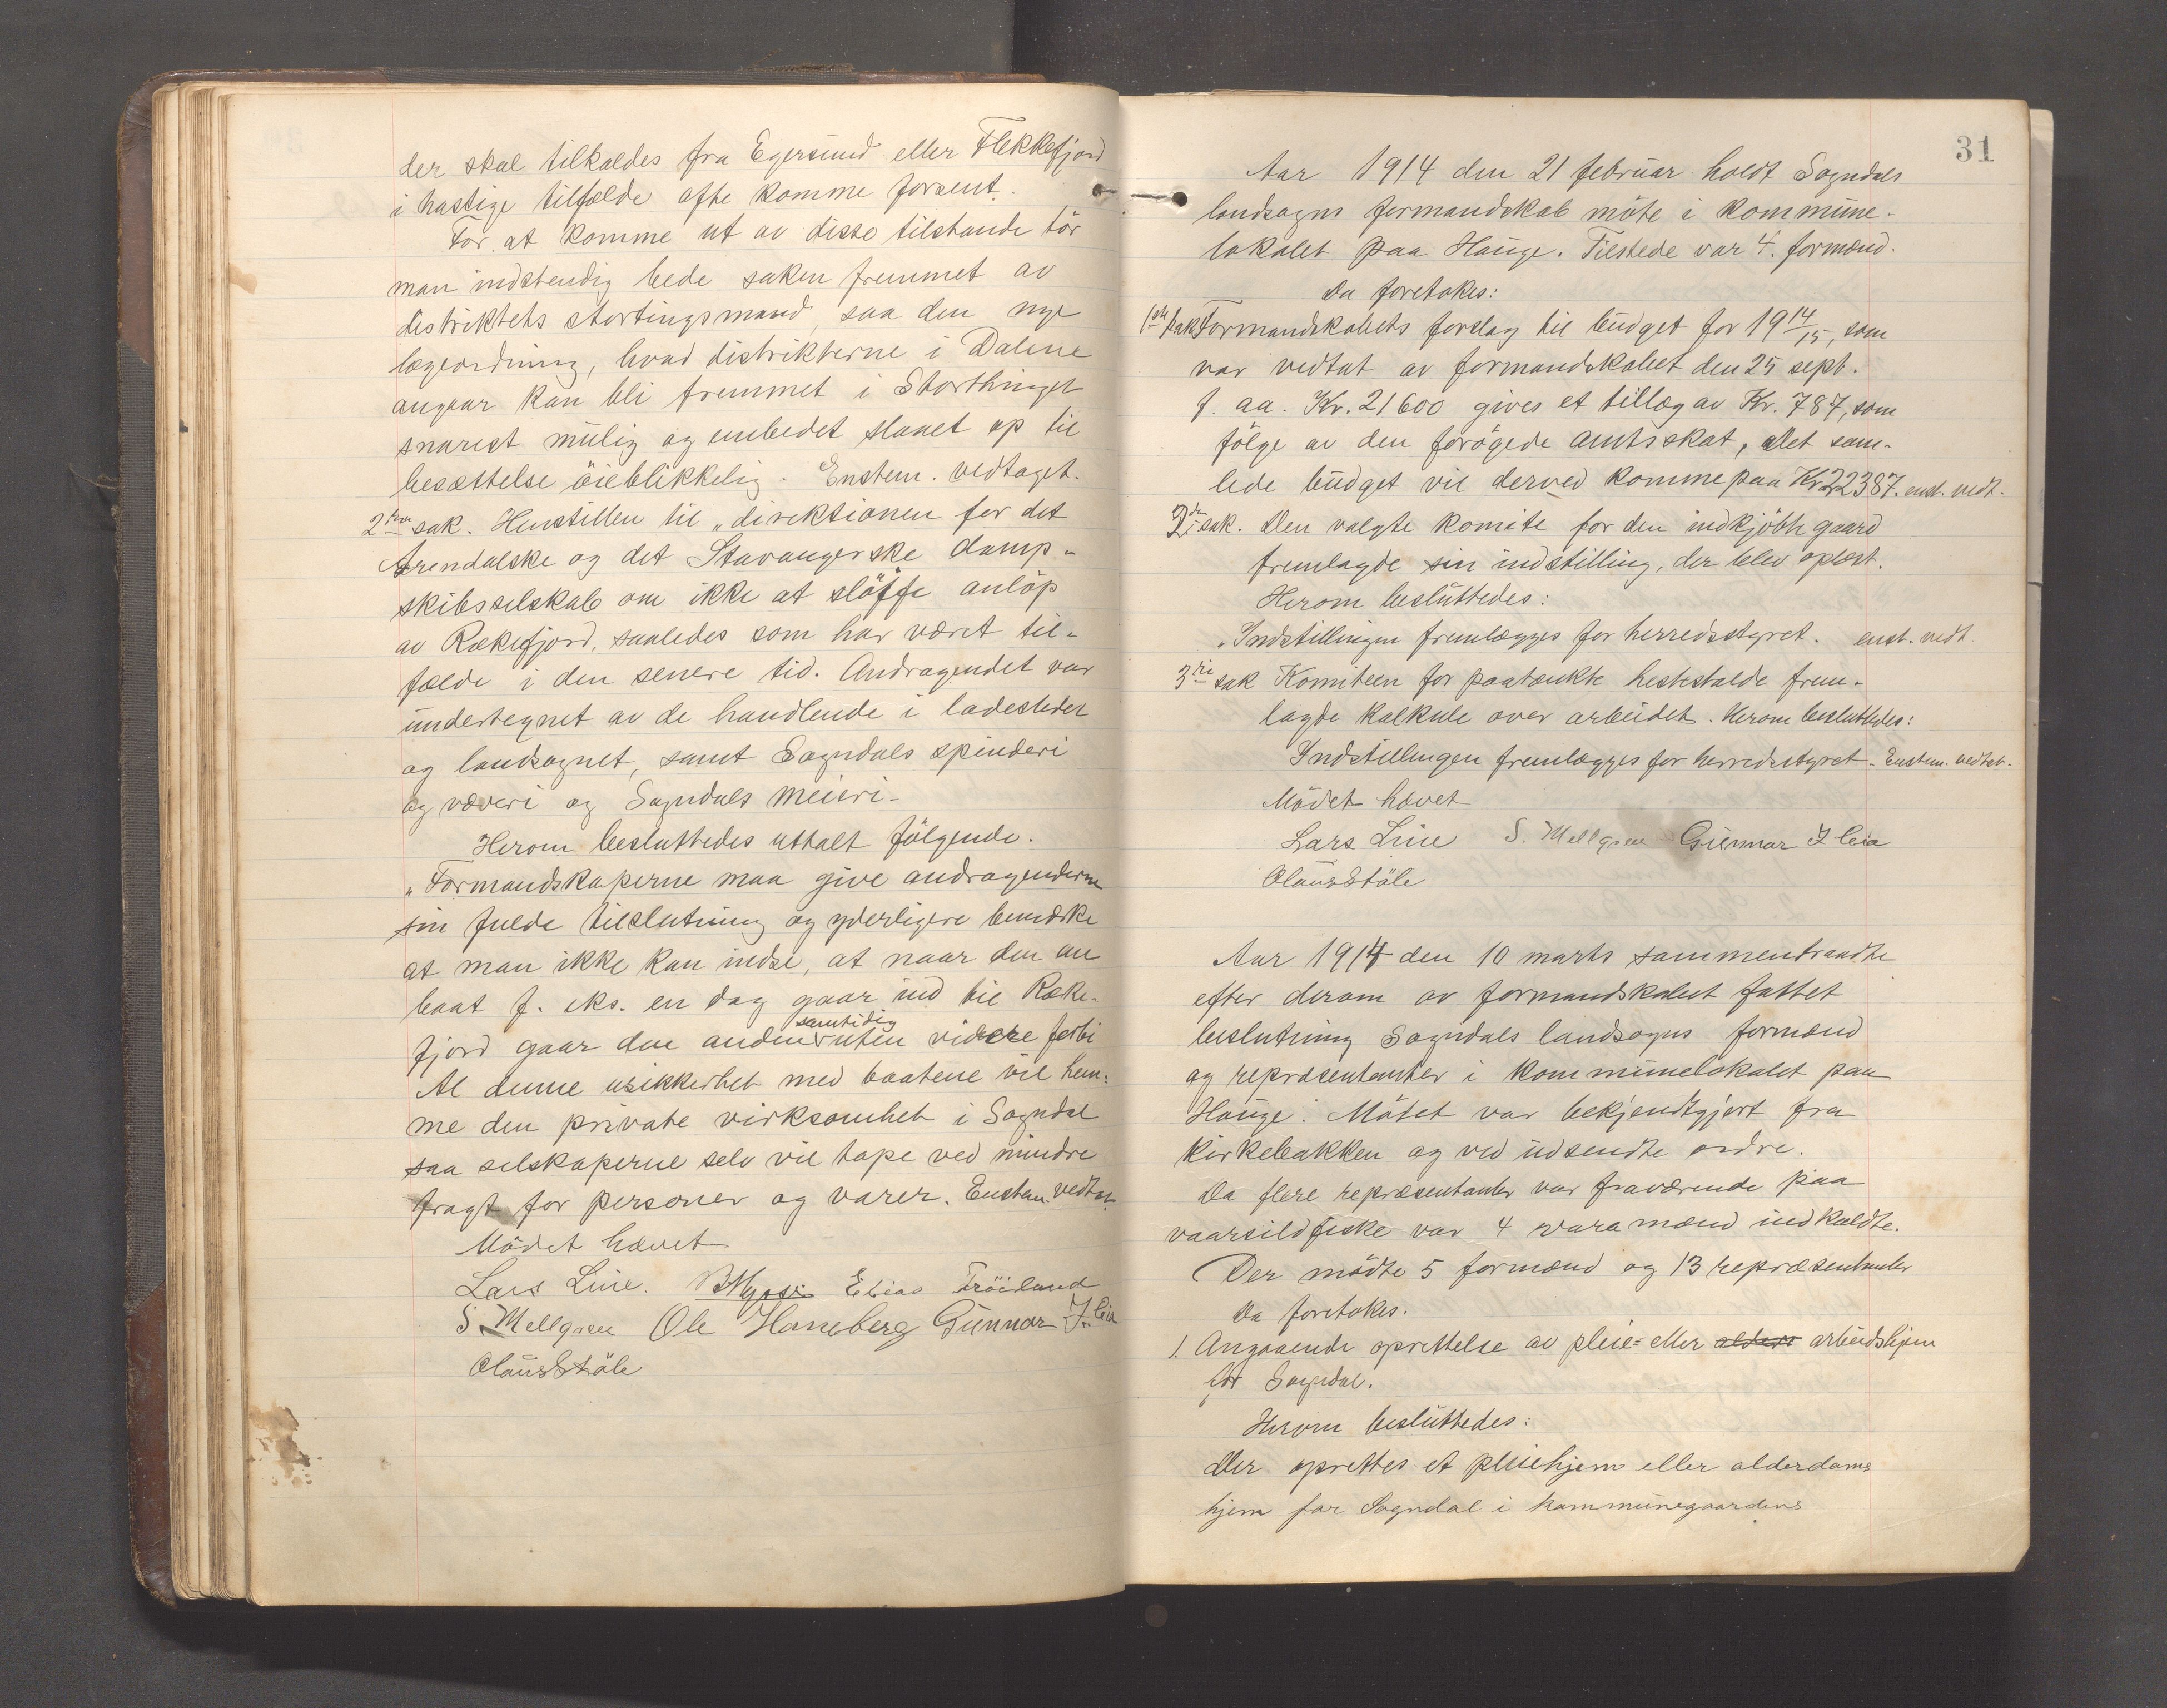 der skal tilkaldes fra Egersund eller Flekkefjord
i hastige tilfælde ofte komme forsent.
For at komme ut av disse tilstande tör
man indstendig bede saken fremmet av
distriktets stortingsmand, saa den nye
lægeordning, hvad distrikterne i Dalene
angaar kan bli fremmet i Storthinget
snarest mulig og embedet slaaet op til
besættelse öieblikkelig. Enstem. vedtaget.
2den sak. Henstillen til "direktionen for det
Arendalske og det Stavangerske damp-
skibsselskab om ikke at slöife anlöp
av Rækefjord, saaledes som har været til-
fælde i den senere tid. Andragendet var
undertegnet av de handlende i ladestedet
og landsognet, samt Sogndals spinderi
og væveri og Sogndals meieri-
Herom besluttedes uttalt fölgende.
"Formandskaperne maa give andragenderne
sin fulde tilslutning og yderligere bemerke
at man ikke kan indse, at naar den ene
baat f. eks. en dag gaar ind til Ræke-
fjord gaar den anden samtidig uten videre forbi
At denne usikkerhet med baatene vil hem-
me den private virksomhet i Sogndal
saa selskaperne selv vil tape ved mindre
fragt for personer og varer. Enstem. vedtat.
Mödet hævet
Lars Line. Elias Tröiland
S. Mellgren Ole Haneberg Gunnar I. Eia
Olaus Stöle
31
Aar 1914 den 21 februar holdt Sogndals
landsogns formandskab möte i kommune-
lokalet paa Hauge. Tilstede var 4. formænd.
Da foretokes:
1ste sak Formandskabets forslag til budget for 1914/15, som
var vedtat av formandskabet den 25 sept.
f. aa. Kr. 21600 gives et tillæg av Kr. 787, som
fölge av den forögede amtsskat, Det sam-
lede budget vil derved komme paa Kr 22387. enst. vedt.
2den sak. Den valgte komite for den indkjöbte gaard
fremlagde sin indstilling, der blev oplæst.
Herom besluttedes:
"Indstillingen fremlægges for herredsstyret. enst. vedt.
3die sak Komiteen for paatænkte hestestalde frem-
lagde kalkule over arbeidet. Herom besluttedes:
Indstillingen fremlægges for herredsstyret. Enstem. vedtat.
Mödet hævet
Lars Line S. Mellgren Gunnar I Eia
Olaus Stöle
Aar 1914 den 10 marts sammentraadte
efter derom av formandskabet fattet
beslutning Sogndals landsogns formænd
og repræsentanter i kommunelokalet paa
Hauge. Mötet var bekjendtgjort fra
kirkebakken og ved udsendte ordre.
Da flere repræsentanter var fraværende paa
vaarsildfiske var 4 varamænd indkaldte.
Der mödte 5 formænd og 13 repræsentanter
Da foretokes.
1. Angaaende oprettelse av pleie= eller arbeidshjem
for Sogndal.
Herom besluttedes:
Der oprettes et pleiehjem eller alderdoms
hjem for Sogndal i kommunegaardens